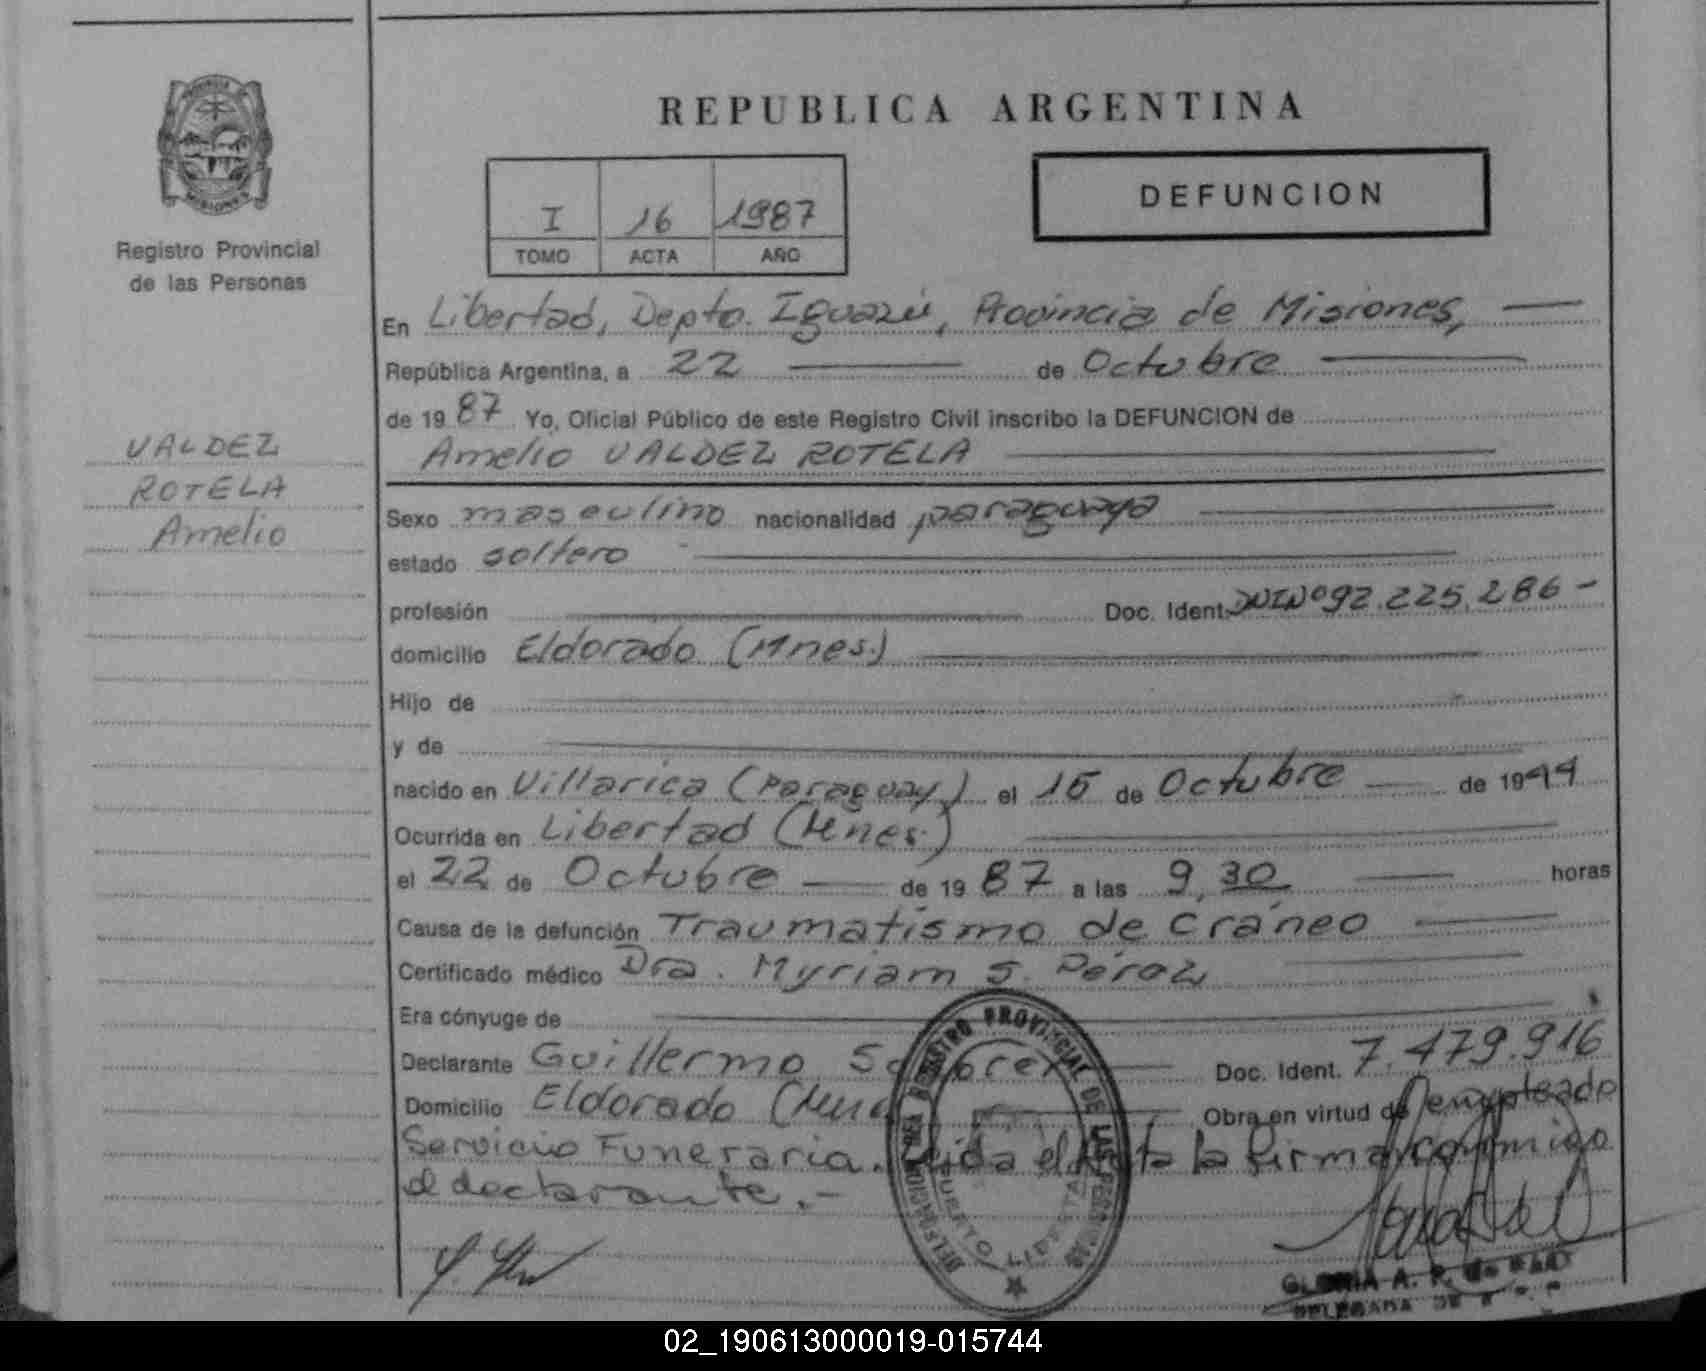 REPUBLICA ARGENTINA
PROVINCIA DE
MISIONES
Registro Provincial
de las Personas
I 16 1987
TOMO ACTA AÑO
DEFUNCION
En Libertad, Depto. Iguazú, Provincia de Misiones,
República Argentina, a 22 de Octubre
de 19 87 Yo, Oficial Público de este Registro Civil inscribo la DEFUNCION de
Amelio VALDEZ ROTELA
VALDEZ
ROTELA
Amelio
Sexo masculino nacionalidad paraguaya
estado soltero
profesión Doc. Ident. DNI Nº 92.225.286-
domicilio Eldorado (Mnes.)
Hijo de
y de
nacido en Villarica (Paraguay) el 15 de Octubre de 1944
Ocurrida en Libertad (Mnes.)
el 22 de Octubre de 19 87 a las 9,30 horas
Causa de la defunción Traumatismo de cráneo
Certificado médico Dra. Myriam S. Pérez
Era cónyuge de
Declarante Guillermo Doc. Ident. 7.479.916
Domicilio Eldorado Obra en virtud de empleado
Servicio Funeraria. Leida el Acta la firma conmigo
el declarante.-
REGISTRO PROVINCIAL DE LAS PERSONAS
PUERTO LIBERTAD
GLORIA A.
DELEGADA
02_190613000019-015744